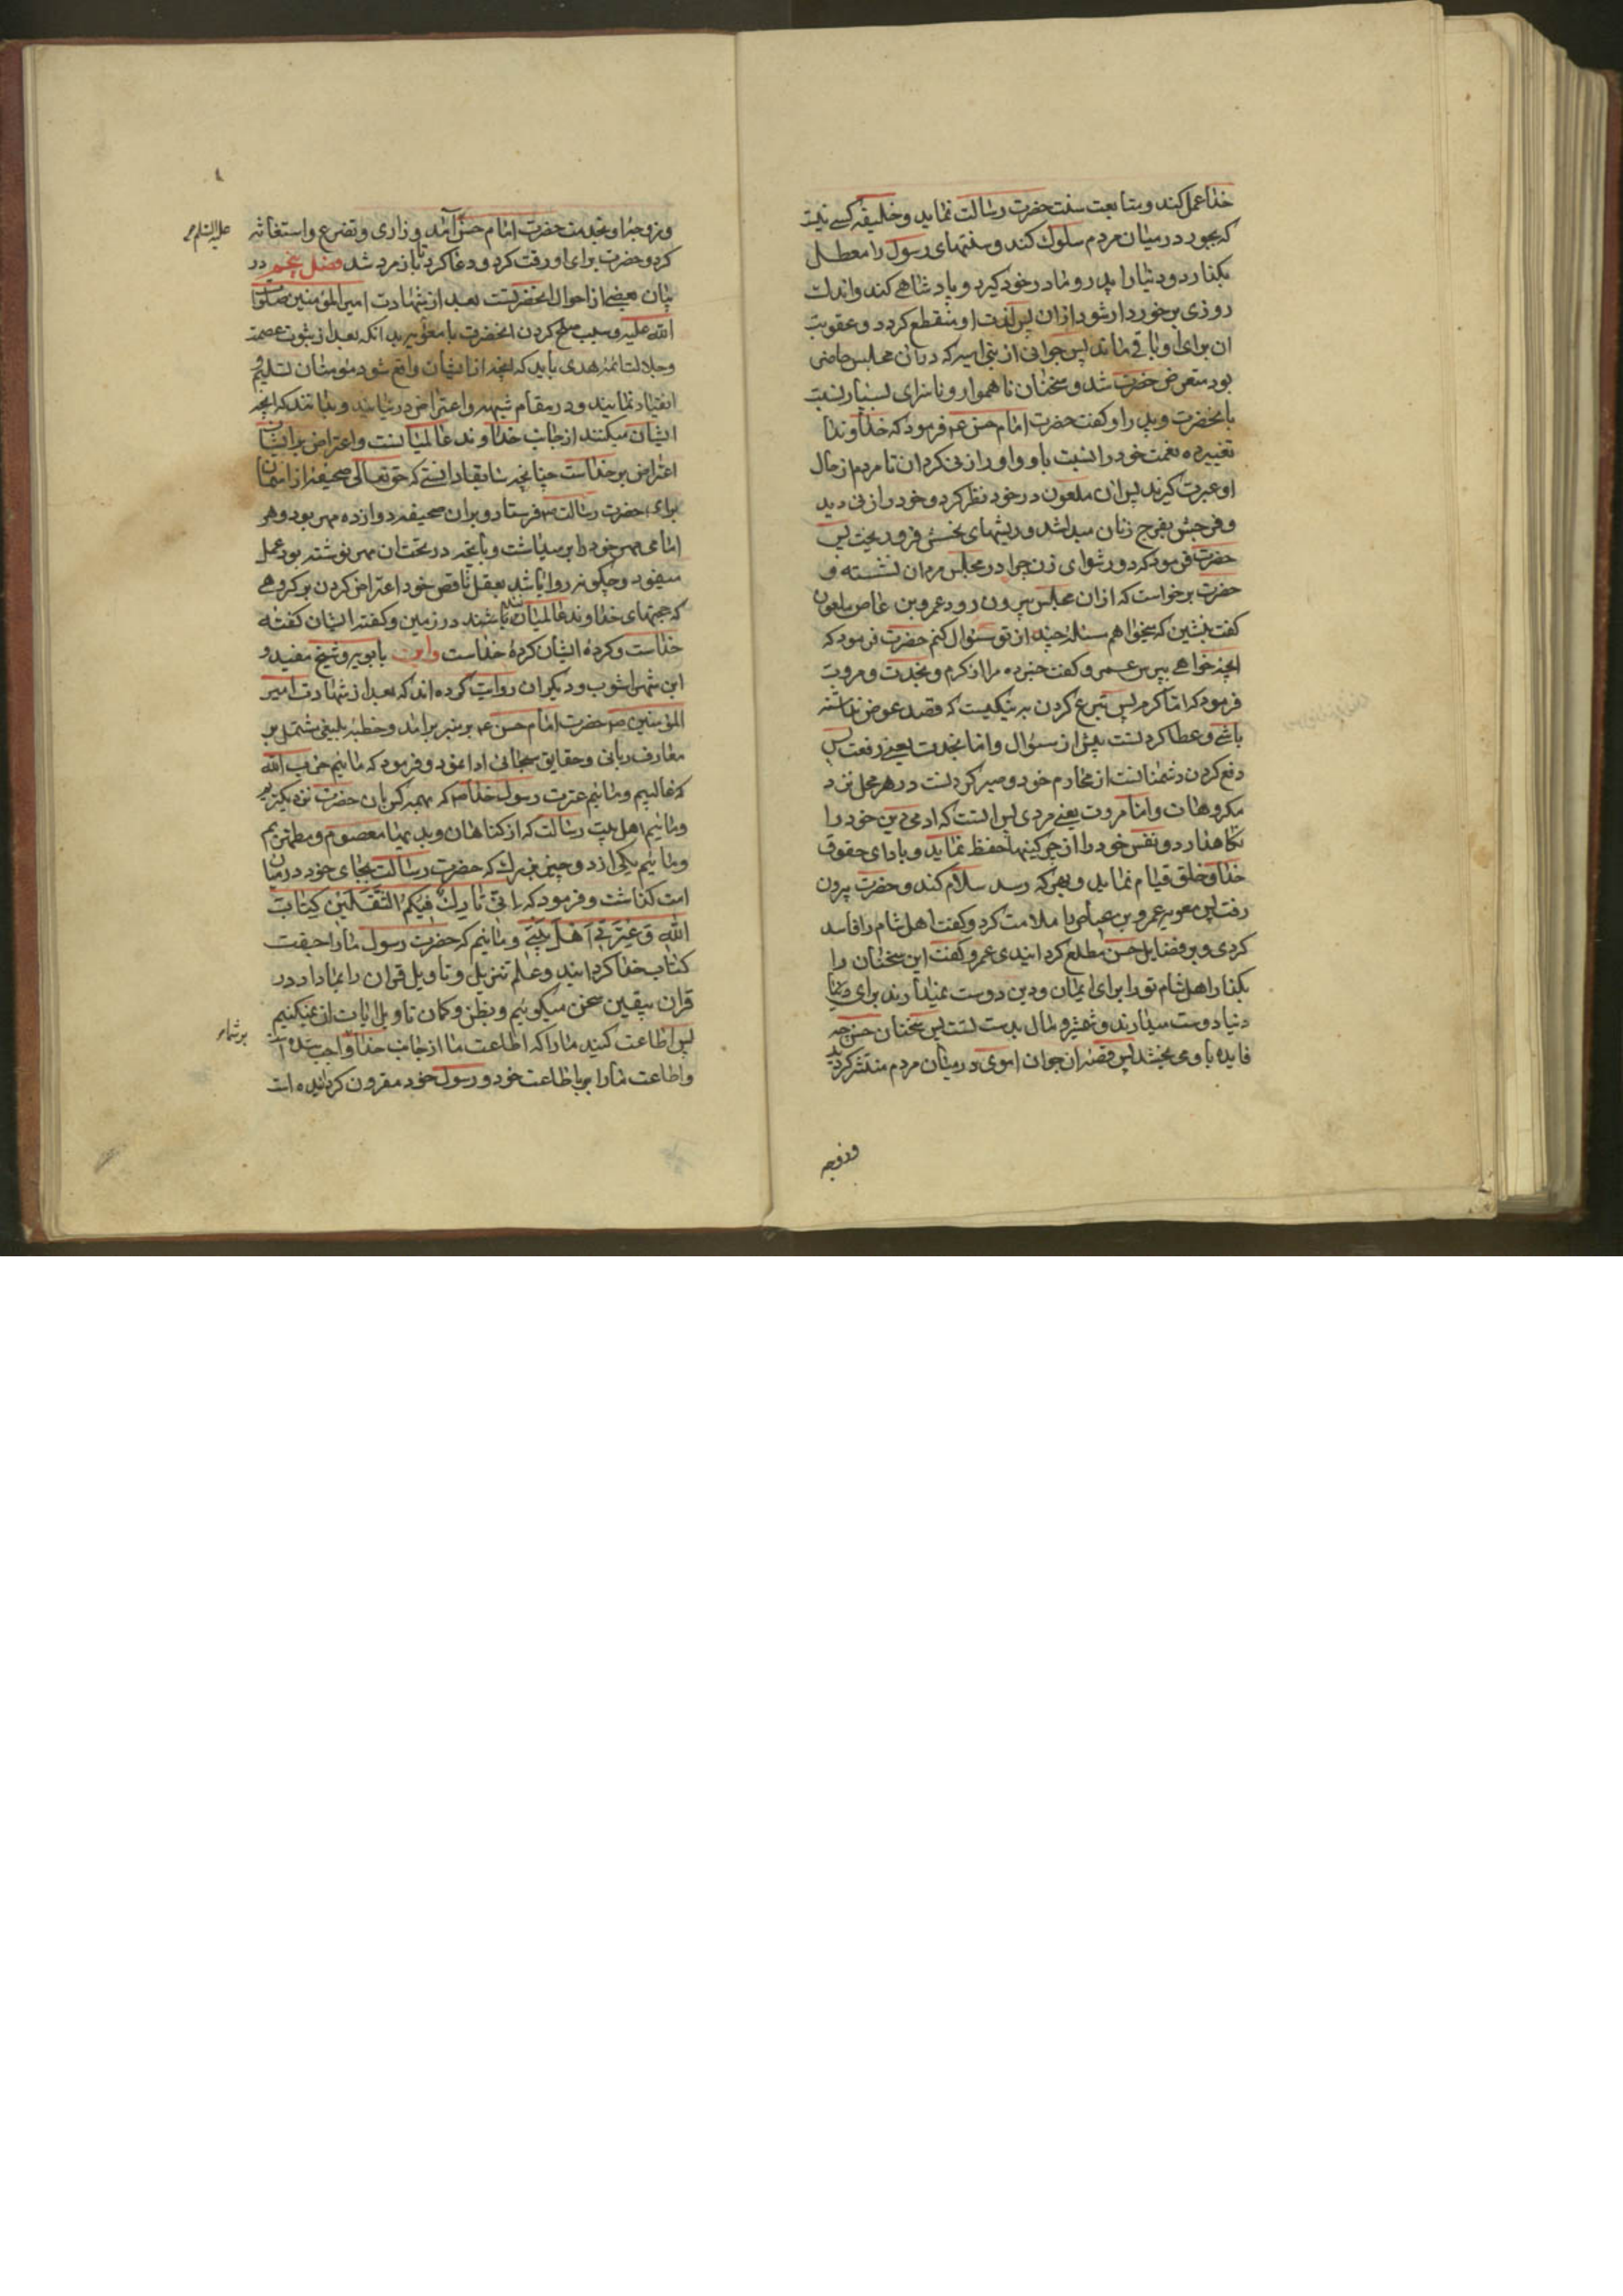 خدا عمل کند و متابعت سنت حضرت رسالت نماید و خلیفه کسے نیست
که بجور در میان مردم سلوک کند و سنتهای رسول را معطل
بگذارد و دنیا را پدر و مادر خود گیرد و پادشاهے کند و اندک
روزی برخوردار شود از ان پس لذت او منقطع کردد و عقوبت
ان برای او باقے ماند پس جوانی از بنی امیه که در ان مجلس حاضر
بود متعرض حضرت شد و سخنان ناهموار و ناسزای بسیار نسبت
بانحضرت و پدر او کفت حضرت امام حسن ع فرمود که خداوندا
تغییر ده نعمت خود را نسبت باو و او را زنی کردان تا مردم از حال
او عبرت کیرند پس ان ملعون در خود نظر کرد و خود را زنی دید
و فرجش بفرج زنان مبدل شد و ریشهای نحسش فرو ریخت پس
حضرت فرمود که دور شو ای زن چرا در مجلس مردان نشسته و
حضرت برخواست که از ان مجلس بیرون رود عمرو بن عاص ملعون
کفت بنشین که میخواهم مسئله چند از تو سئوال کنم حضرت فرمود که
انچه خواهے بپرس عمرو کفت خبر ده مرا از کرم و نجدت و مروت
فرمود که اما کرم پس تبرع کردن به نیکیست که قصد عوض نداشته
باشے و عطا کردنست پیش از سئوال و اما نجدت یعنے رفعت پس
دفع کردن دشمنانست از محارم خود و صبر کردنست در هر محل نزد
مکروهات و اما مروت یعنے مردی پس انست که ادمی دین خود را
نکاهدارد و نفس خود را از چرکینها حفظ نماید و بادای حقوق
خدا و خلق قیام نماید و بهر که رسد سلام کند و حضرت بیرون
رفت پس معویه عمرو بن عاص را ملامت کرد و کفت اهل شام را فاسد
کردی و بر فضایل حسن مطلع کردانیدی عمرو کفت این سخنان را
بگذار اهل شام تو را برای ایمان و دین دوست نمیدارند برای
دنیا دوست میدارند و شمشیر و مال بدست تست پس سخنان حسن چه
فایده باو می بخشد پس قصه ان جوان اموی در میان مردم منتشر کردید
وزوجه
وزوجه او بخدمت حضرت امام حسن امد و زاری و تضرع و استغاثه
علیه السلم
کرد و حضرت برای او رقت کرد و دعا کرد تا باز مرد شد فصل پنجم در
بیان بعضے از احوال انحضرتست بعد از شهادت امیر المؤمنین صلوات
الله علیه و سبب صلح کردن انحضرت با معویه بدانکه بعد از ثبوت عصمت
و جلالت ائمه هدی باید که انچه از ایشان واقع شود مومنان تسلیم و
انقیاد نمایند و در مقام شبهه و اعتراض در نیایند و بدانند که انچه
ایشان میکنند از جانب خداوند عالمیانست و اعتراض بر ایشان
اعتراض بر خداست چنانچه سابقا دانستے که حق تعالی صحیفه از اسمان
برای حضرت رسالت ص فرستاد و بر ان صحیفه دوازده مهر بود و هر
امامی مهر خود را بر میداشت و بانچه در تحت ان مهر نوشته بود عمل
مینمود و چگونه روا باشد بعقل ناقص خود اعتراض کردن بر کروهے
که حجتهای خداوند عالمیان باشند در زمین و کفته ایشان کفته
خداست و کرده ایشان کرده خداست و ابن بابویه و شیخ مفید و
ابن شهراشوب و دیکران روایت کرده اند که بعد از شهادت امیر
المؤمنین ص حضرت امام حسن ع بر منبر برامد و خطبه بلیغی مشتمل بر
معارف ربانی و حقایق سبحانی ادا نمود و فرمود که مائیم حزب الله
که غالبیم و مائیم عترت رسول خدا ص که از همه کس بان حضرت نزدیکتریم
و مائیم اهل بیت رسالت که از کناهان و بدیها معصوم و مطهریم
و مائیم یکی از دو چیز بزرک که حضرت رسالت بجای خود در میان
امت کذاشت و فرمود که اِنّی تارِکٌ فیکُمُ الثَّقَلَیْنِ کِتابَ
اللهِ وَ عِتْرَتی اَهْلَ بَیْتی و مائیم که حضرت رسول ما را جفت
کتاب خدا کردانید و علم تنزیل و تاویل قران را بما داد در
قران بیقین سخن میکوئیم و بظن و کمان تاویل ایات ان نمیکنیم
پس اطاعت کنید ما را که اطاعت ما از جانب خدا واجب شده است
بر شما
و اطاعت ما را باطاعت خود و رسول خود مقرون کردانیده است